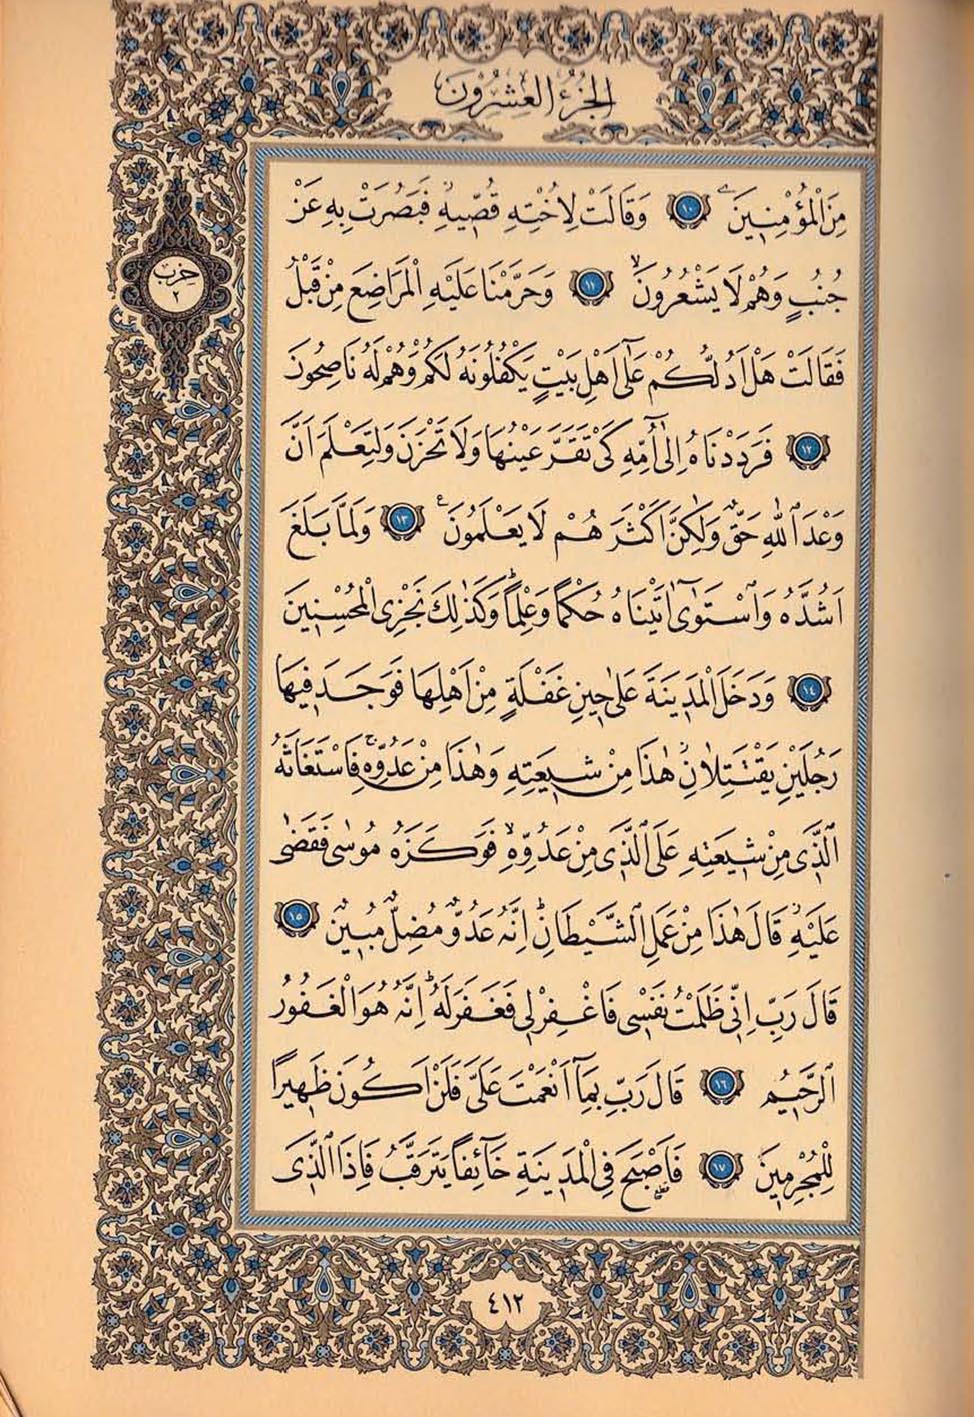 الجزء العشرون
حزب
٢
مِنَ الْمُؤْمِنِينَ ١٠ وَقَالَتْ لِاُخْتِهِ قُصِّيهِ فَبَصُرَتْ بِهِ عَنْ
جُنُبٍ وَهُمْ لَا يَشْعُرُونَ ١١ وَحَرَّمْنَا عَلَيْهِ الْمَرَاضِعَ مِنْ قَبْلُ
فَقَالَتْ هَلْ اَدُلُّكُمْ عَلٰٓى اَهْلِ بَيْتٍ يَكْفُلُونَهُ لَكُمْ وَهُمْ لَهُ نَاصِحُونَ
١٢ فَرَدَدْنَاهُ اِلٰٓى اُمِّهِ كَيْ تَقَرَّ عَيْنُهَا وَلَا تَحْزَنَ وَلِتَعْلَمَ اَنَّ
وَعْدَ اللّٰهِ حَقٌّ وَلٰكِنَّ اَكْثَرَهُمْ لَا يَعْلَمُونَ ١٣ وَلَمَّا بَلَغَ
اَشُدَّهُ وَاسْتَوٰٓى اٰتَيْنَاهُ حُكْمًا وَعِلْمًا وَكَذٰلِكَ نَجْزِي الْمُحْسِنِينَ
١٤ وَدَخَلَ الْمَدِينَةَ عَلٰى حِينِ غَفْلَةٍ مِنْ اَهْلِهَا فَوَجَدَ فِيهَا
رَجُلَيْنِ يَقْتَتِلَانِ هٰذَا مِنْ شِيعَتِهِ وَهٰذَا مِنْ عَدُوِّهِ فَاسْتَغَاثَهُ
الَّذِي مِنْ شِيعَتِهِ عَلَى الَّذِي مِنْ عَدُوِّهِ فَوَكَزَهُ مُوسٰى فَقَضٰى
عَلَيْهِ قَالَ هٰذَا مِنْ عَمَلِ الشَّيْطَانِ اِنَّهُ عَدُوٌّ مُضِلٌّ مُبِينٌ ١٥
قَالَ رَبِّ اِنِّي ظَلَمْتُ نَفْسِي فَاغْفِرْ لِي فَغَفَرَ لَهُ اِنَّهُ هُوَ الْغَفُورُ
الرَّحِيمُ ١٦ قَالَ رَبِّ بِمَٓا اَنْعَمْتَ عَلَيَّ فَلَنْ اَكُونَ ظَهِيرًا
لِلْمُجْرِمِينَ ١٧ فَاَصْبَحَ فِي الْمَدِينَةِ خَٓائِفًا يَتَرَقَّبُ فَاِذَا الَّذِي
٤١٢